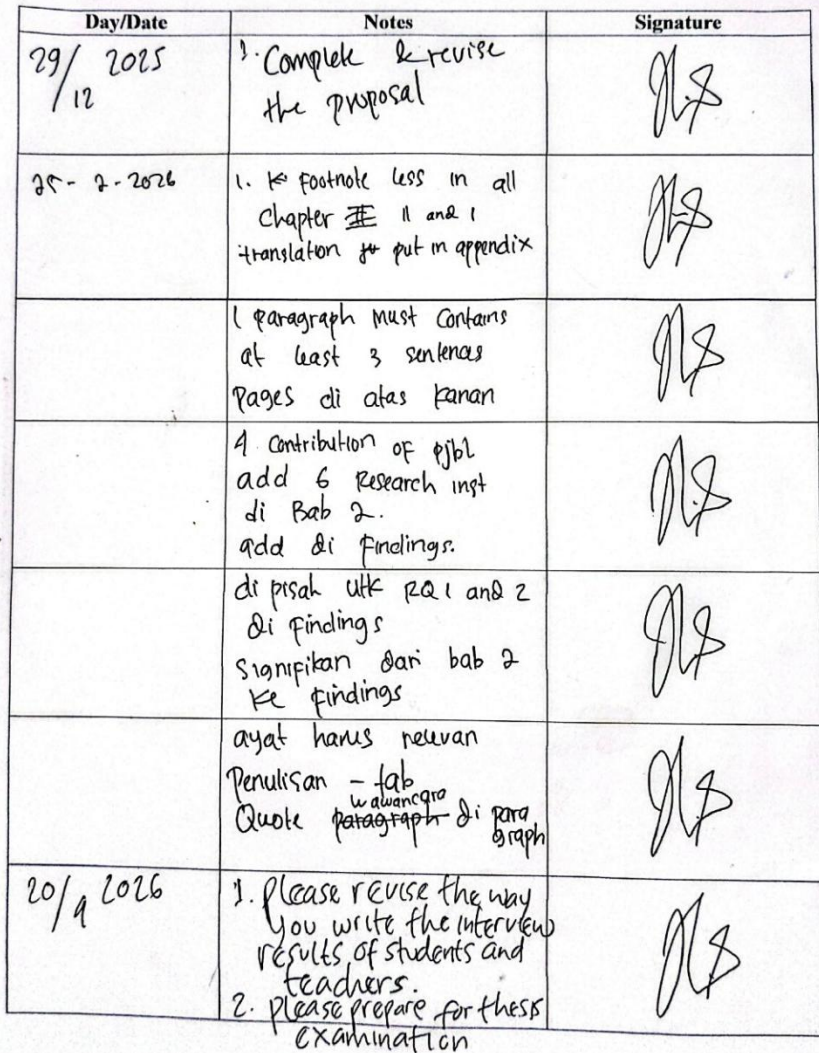 Day/Date Notes Signature
29/12 2025
1. Complete & revise
the proposal
25 - 2 - 2026
1. Footnote less in all
Chapter II and I
translation put in appendix
1 paragraph must contains
at least 3 sentences
Pages di atas kanan
4 contribution of pjbl
add 6 Research inst
di Bab 2.
add di Findings.
di pisah utk RQ1 and 2
di Findings
Signifikan dari bab 2
ke findings
ayat harus relevan
Penulisan - tab
wawancara
Quote paragraph di para
graph
20/4 2026
1. please revise the way
you write the interview
results of students and
teachers.
2. please prepare for thesis
examination